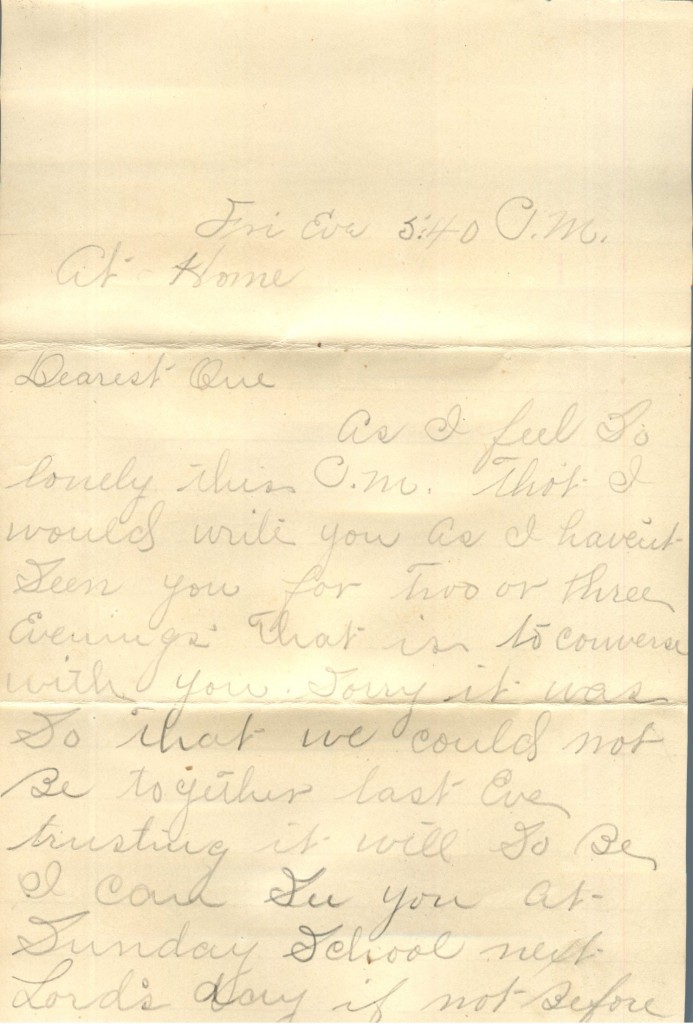 Fri Eve 5:40 P.M.
At Home
Dearest One
As I feel So
lonely this P.M. That I
would write you as I havent
Seen you for Two or three
Evenings That is to converse
with you. Sorry it was
So that we could not
Be together last Eve
trusting it will So Be
I can See you at
Sunday School next
Lord's Day if not Before